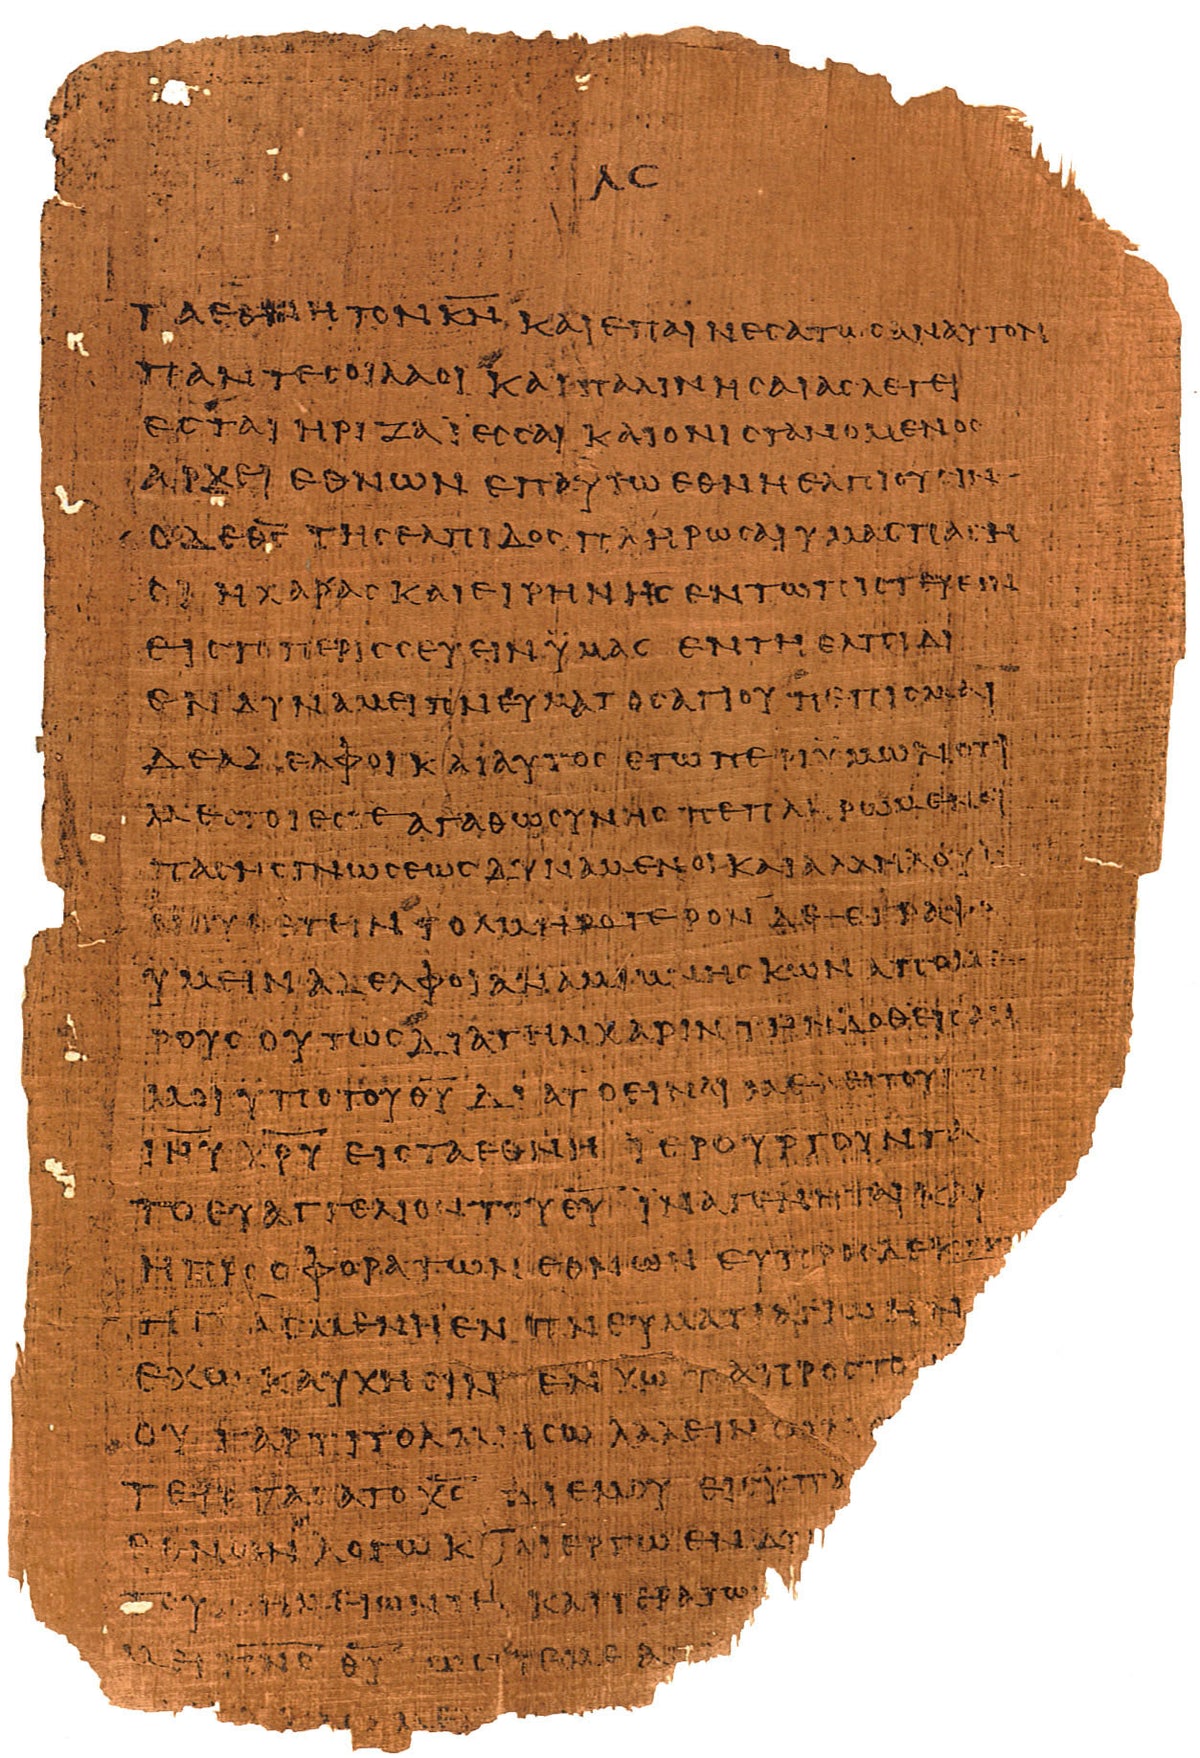 λς
τα εθνη τον κ̅ν̅ και επαινεσατωσαν αυτον
παντες οι λαοι και παλιν ησαιας λεγει
εσται η ριζα ϊεσσαι και ο νιστανομενος
αρχει εθνων επ αυτω εθνη ελπιουσιν
ο δε θ̅ς̅ της ελπιδος πληρωσαι υμας πασης
χαρας και ειρηνης εν τω πιστευειν
εις το περισσευειν ϋμας εν τη ελπιδι
εν δυναμει πνευματος αγιου πεπισμαι
δε αδελφοι και αυτος εγω περι ϋμων οτι
μεστοι εστε αγαθωσυνης πεπληρωμενοι
πασης γνωσεως δυναμενοι και αλληλους
τολμηροτερον δε εγραψα
υμειν αδελφοι αναμιμνησκων
ουτως δια την χαριν την δοθεισαν
μοι υπο του θ̅υ̅ δια το ειναι με λειτουργον
ι̅η̅υ̅ χ̅ρ̅υ̅ εις τα εθνη ϊερουργουντα
το ευαγγελιον του θ̅υ̅ ϊνα γενηται και
η προσφορα των εθνων ευπροσδεκτος
ηγιασμενη εν πνευματι αγιω ην
εχω καυχησιν εν χ̅ω̅ τα προς το
ου γαρ τι τολμησω λαλειν
χ̅ς̅ δι εμου εις ϋπα
εθνων λογω και εργω εν δυ
και τερατω
π̅ν̅ς̅ θ̅υ̅